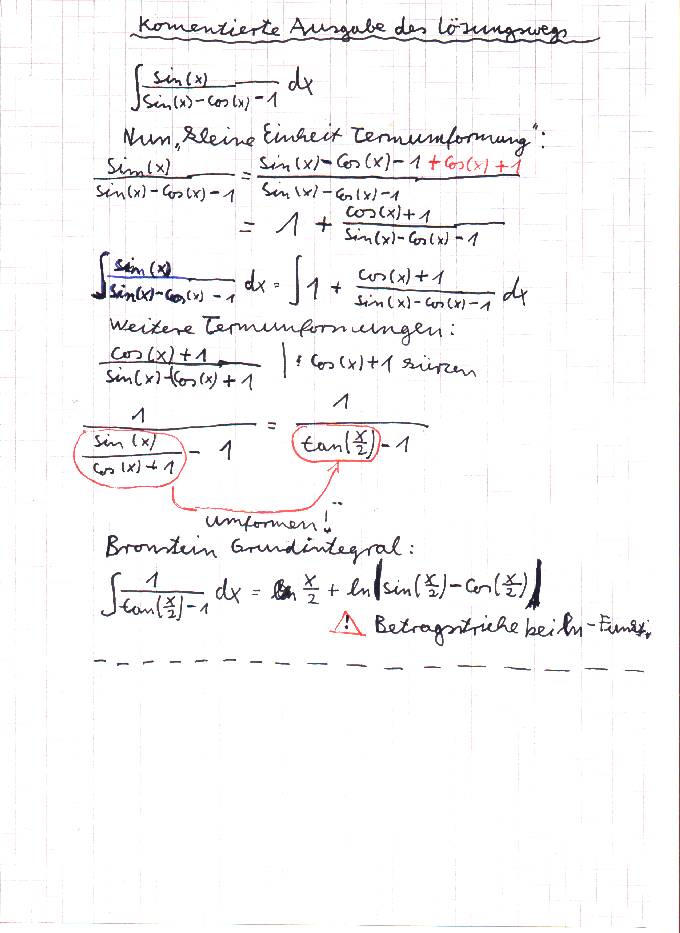 Komentierte Ausgabe des Lösungswegs
∫ sin(x) / (sin(x) - cos(x) - 1) dx
Nun „kleine Einheit Termumformung":
sin(x) / (sin(x) - cos(x) - 1) = (sin(x) - cos(x) - 1 + cos(x) + 1) / (sin(x) - cos(x) - 1)
= 1 + (cos(x) + 1) / (sin(x) - cos(x) - 1)
∫ sin(x) / (sin(x) - cos(x) - 1) dx = ∫ 1 + (cos(x) + 1) / (sin(x) - cos(x) - 1) dx
Weitere Termumformungen:
(cos(x) + 1) / (sin(x) - (cos(x) + 1) | : cos(x) + 1 kürzen
1 / (sin(x) / (cos(x) + 1) - 1) = 1 / (tan(x/2) - 1)
umformen!
Bronstein Grundintegral:
∫ 1 / (tan(x/2) - 1) dx = x/2 + ln|sin(x/2) - cos(x/2)|
! Betragsstriche bei ln-Funkt.